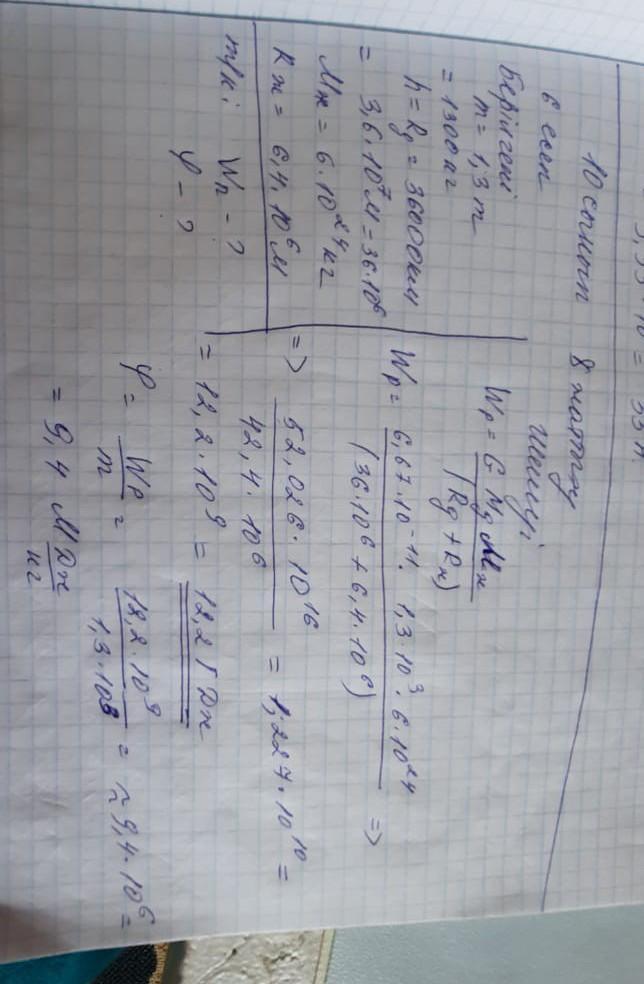 10 сынып 8 нұсқа
6 есеп
Берілгені
m = 1,3 т
= 1300 кг
h = Rg = 36000 км
= 3,6·10⁷ м = 36·10⁶
Mж = 6·10²⁴ кг
Rж = 6,4·10⁶ м
т/к: Wп - ?
φ - ?
Шешуі:
Wp = G Mg Mж / (Rg + Rж)
Wp = 6,67·10⁻¹¹ · 1,3·10³ · 6·10²⁴ / (36·10⁶ + 6,4·10⁶) =>
=> 52,026·10¹⁶ / 42,4·10⁶ = 1,227·10¹⁰ =
= 12,2·10⁹ = 12,2 ГДж
φ = Wp / m = 12,2·10⁹ / 1,3·10³ = ≈ 9,4·10⁶ =
= 9,4 МДж / кг